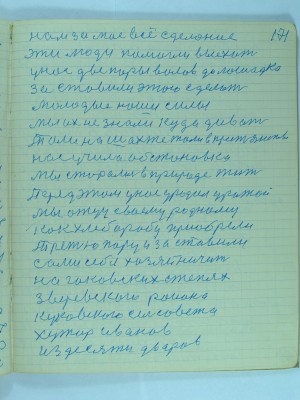 191
нам за мае всё сделоние
эти люди помогли выехат
унас две пары волов да лошадка
за ставили этого сделат
молодые наши силы
мы их не знали куда дават
толи на шахте толи в
нас учила обстоновка
мы старолис в природе жит
перед этом унас уродил урожой
мы отцу своему родному
как хлеборобу приобрели
третюю пару и за ставили
сами себя хозяйничит
на гоковских степях
Зверевского района
Куковского селсовета
хутор Иванов
из десяти дворов